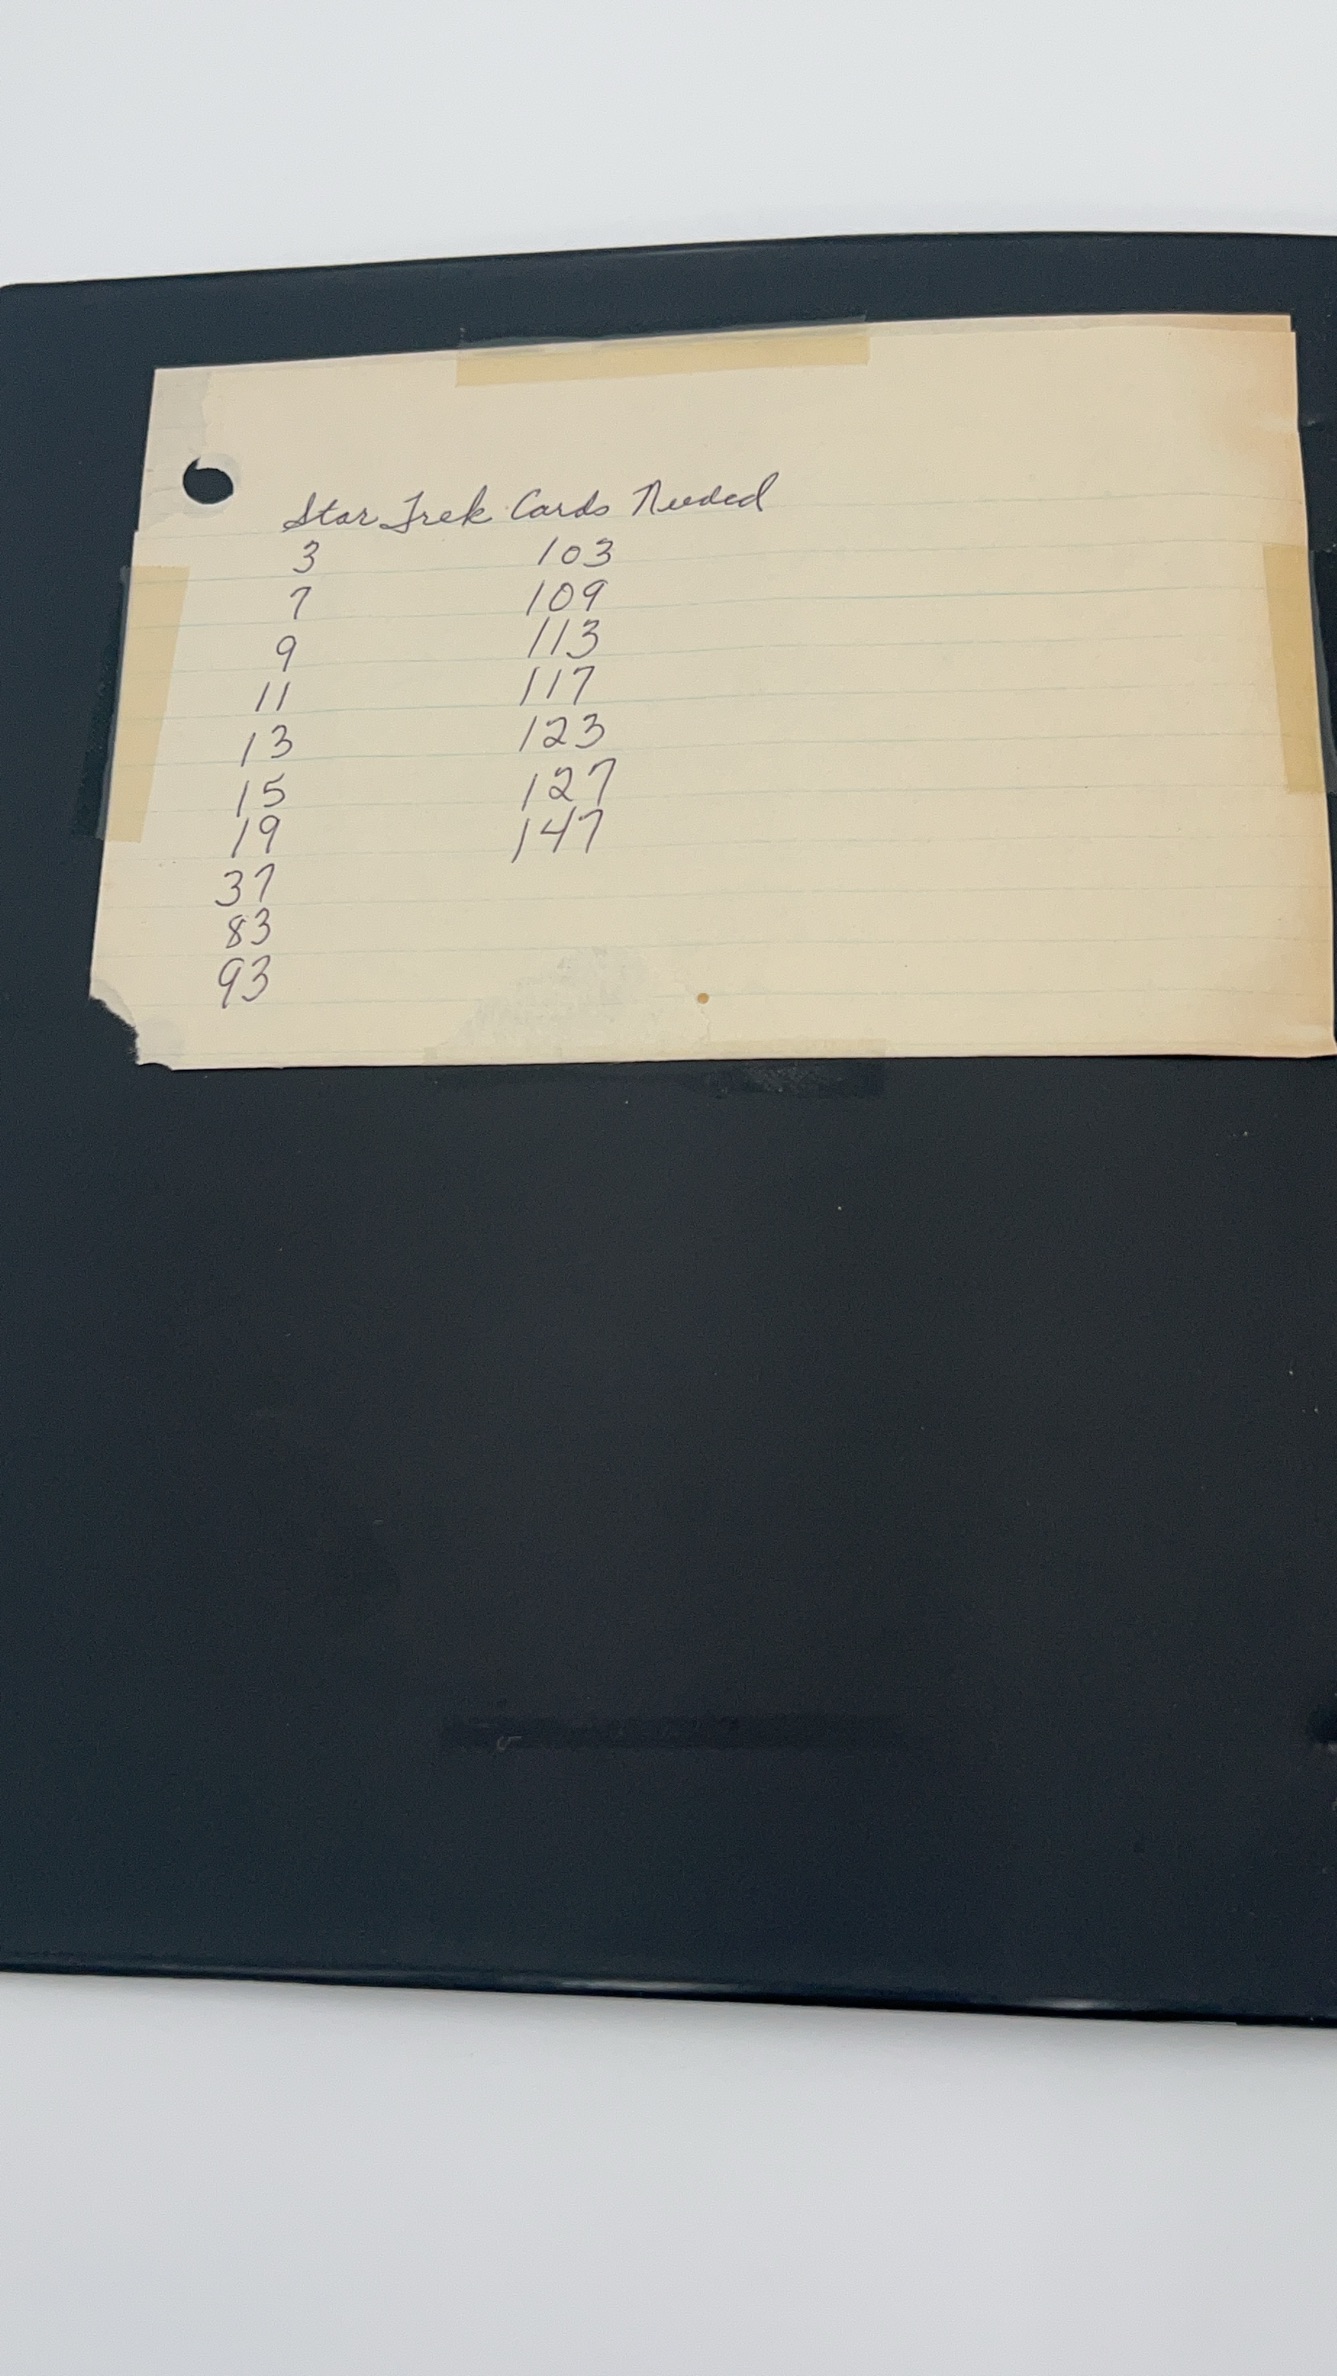 Star Trek Cards Needed
3 103
7 109
9 113
11 117
13 123
15 127
19 147
37
83
93